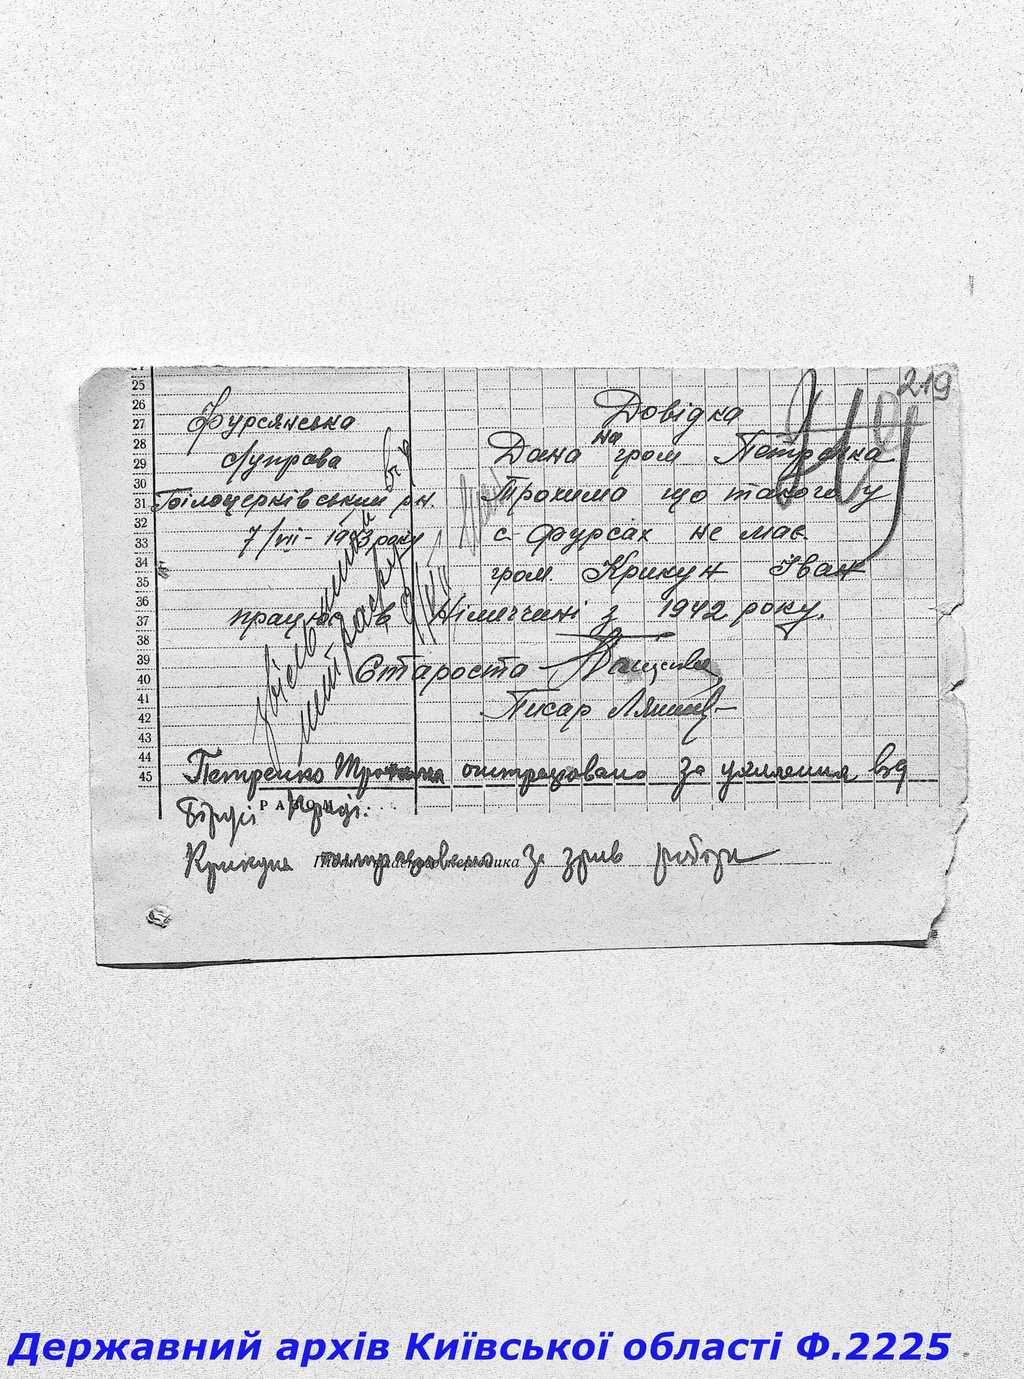 219
25
26
27
28
29
30
31
32
33
34
35
36
37
38
39
40
41
42
43
44
45
Фурсянська
с/управа
Білоцерківський рн.
7/VII - 1943 року
Довідка
Дана на гром Петренка
Трохима що такого у
с. Фурсах не має.
гром. Крикун Іван
працює в Німеччині з 1942 року.
Староста
Писар
Петренко Трохима оштрафовано за ухилення від
Біржі Праці.
РАЗОМ
Крикуна оштрафовано За зрив роботи
Державний архів Київської області Ф.2225